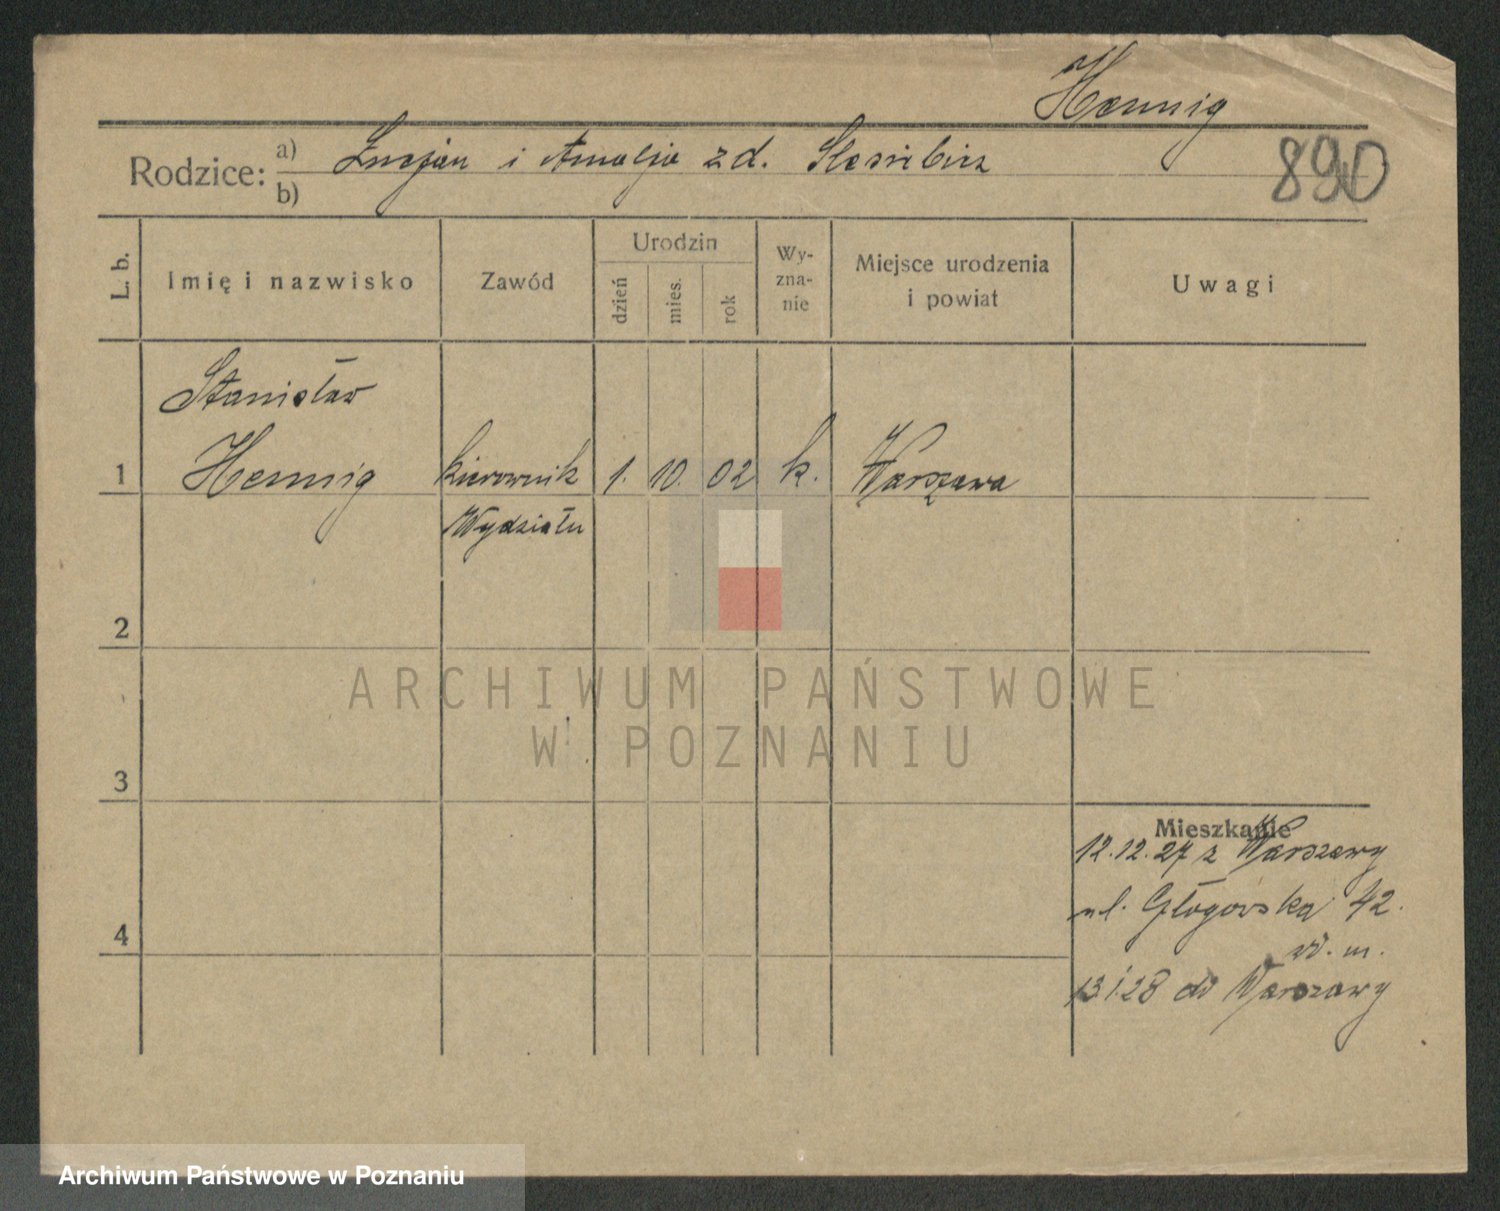 Hennig
890
Rodzice: a) i Amalja z d.
b)
L. b.
Imię i nazwisko
Zawód
Urodzin
dzień
mies.
rok
Wy-
zna-
nie
Miejsce urodzenia
i powiat
Uwagi
Stanisław
1 Hennig kierownik 1. 10. 02 k. Warszawa
Wydziału
2
3
4
Mieszkanie
12.12.27 z Warszawy
ul. Głogowska 42.
m.
13.1.28 do Warszawy
ARCHIWUM PAŃSTWOWE
W POZNANIU
Archiwum Państwowe w Poznaniu